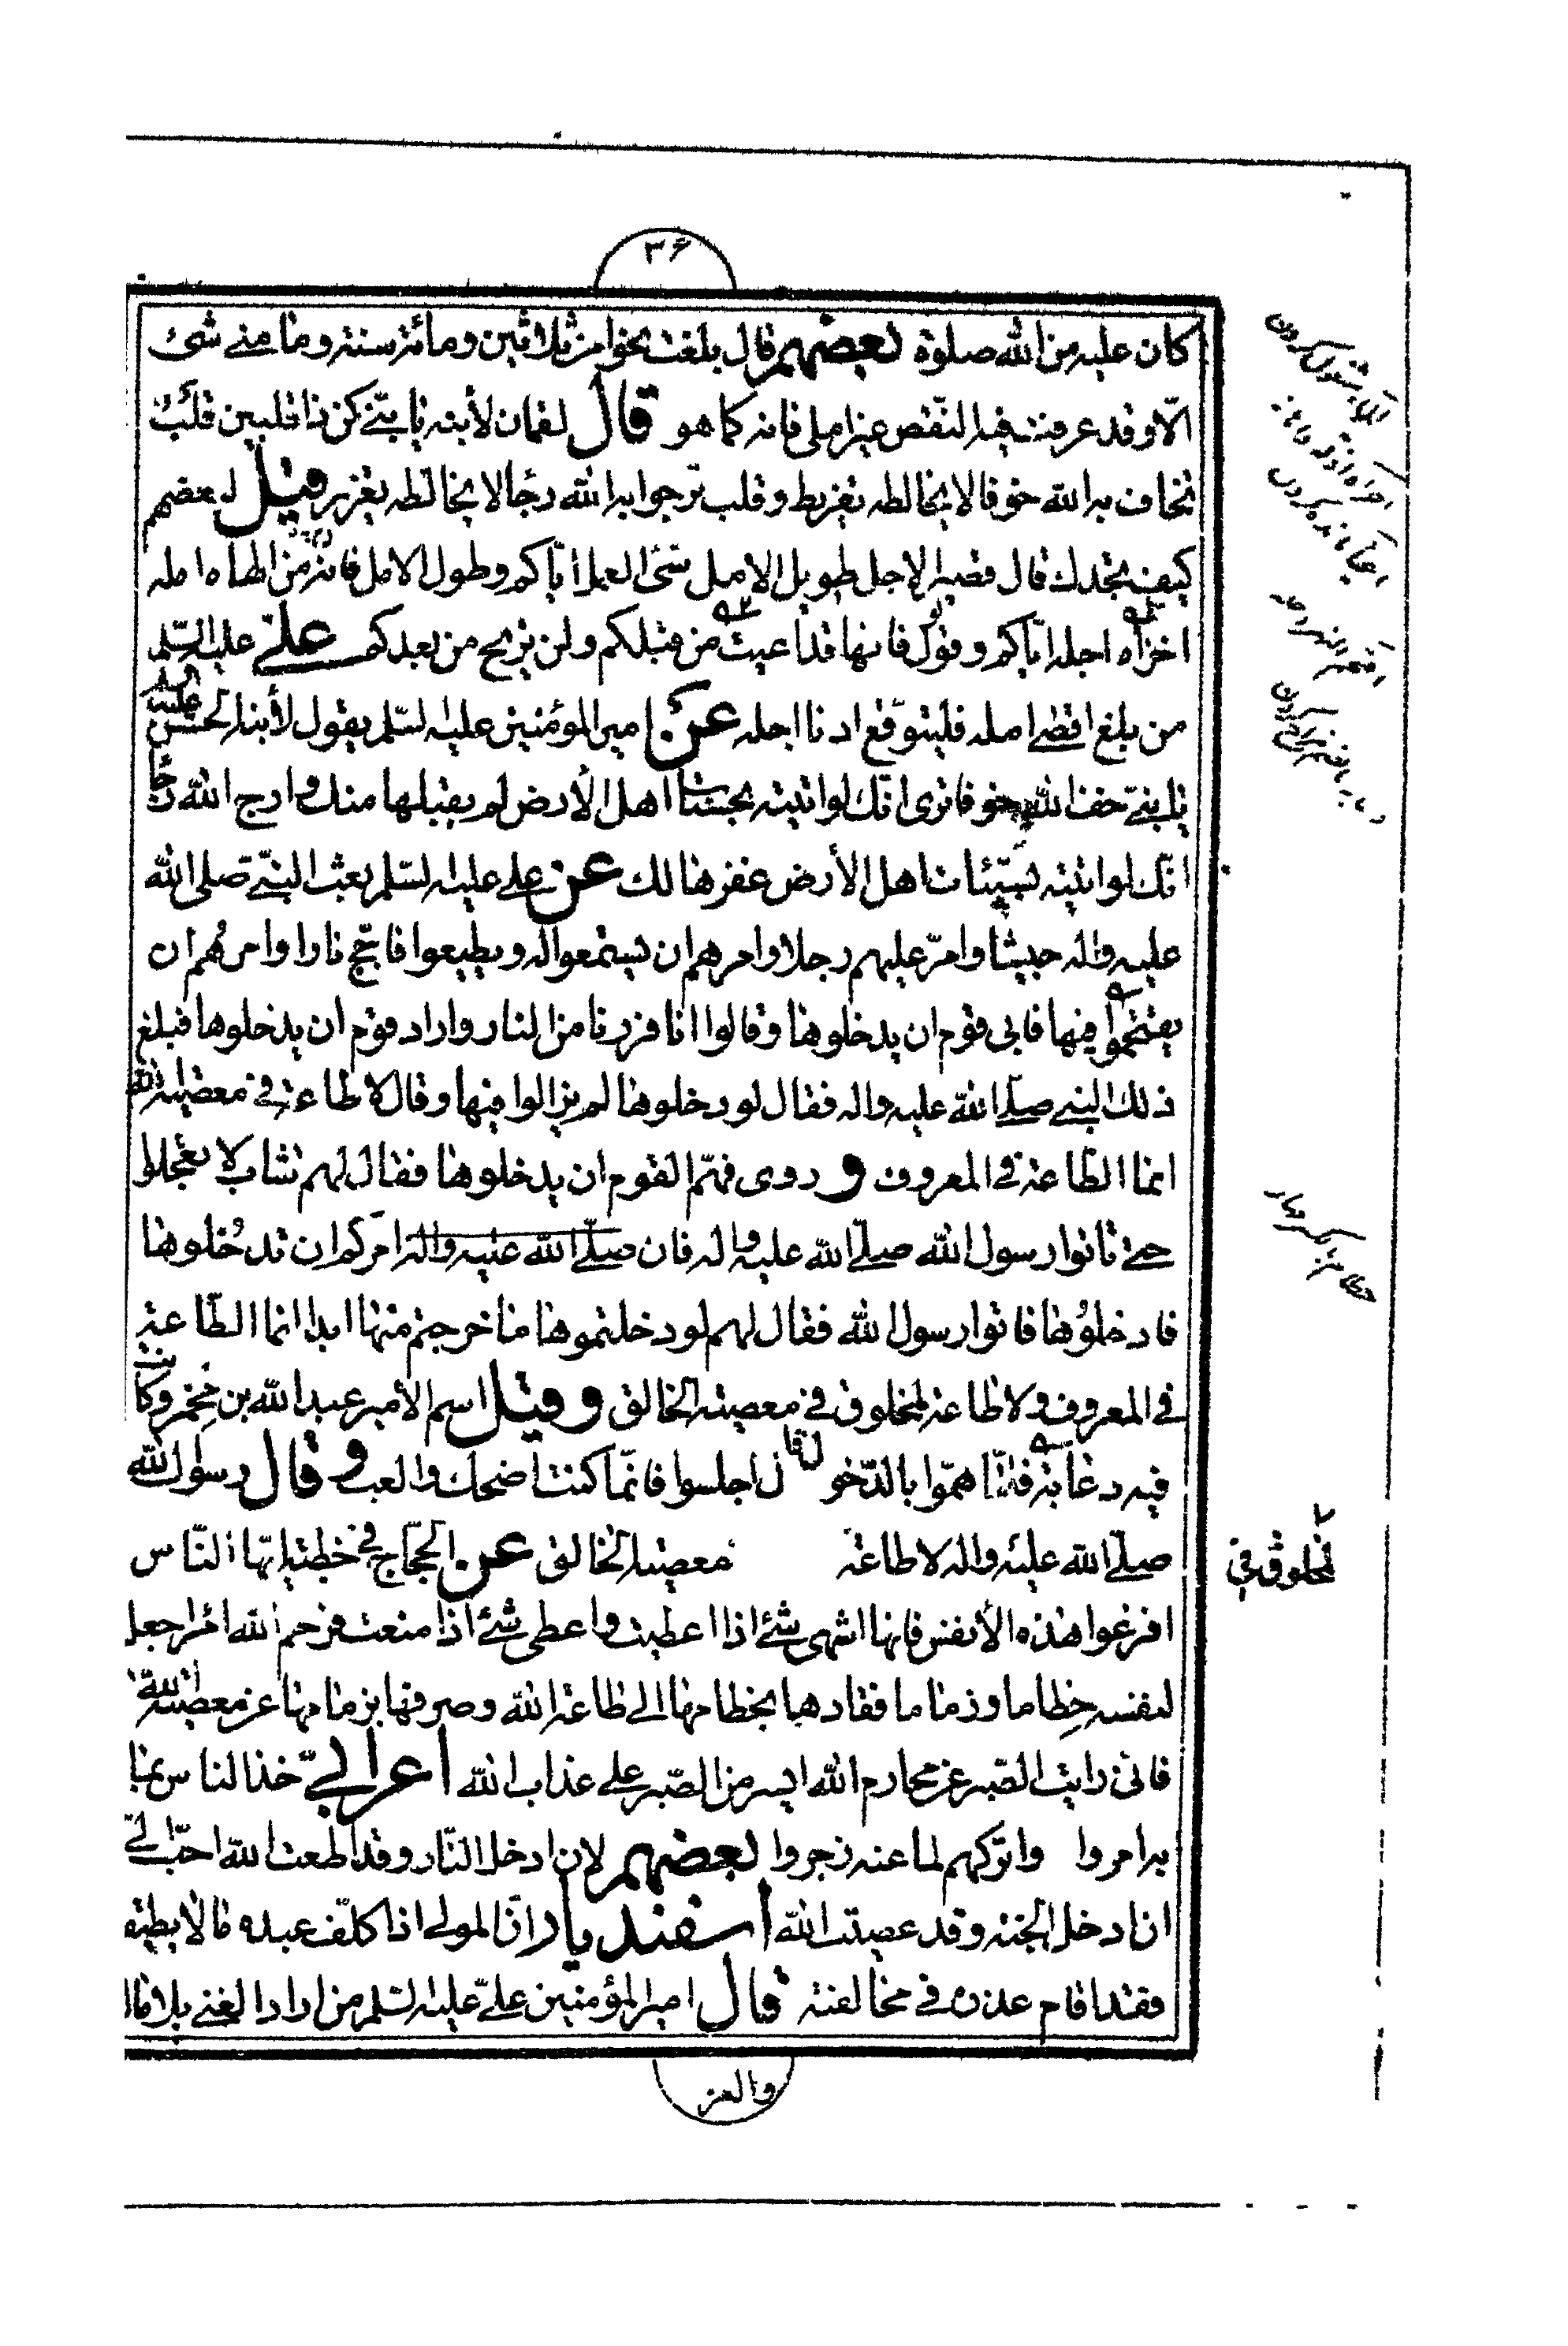 ۳۶
كان عليه من الله صلوة بعضهم قال بلغت نحوا من ثلاثين ومائة سنة وما منے شئ
الّا وقد عرفت فيه النّقص غير املى فانه كما هو قال لقمان لأبنه يا بنّے كن ذا قلبين قلب
تخاف به الله خوفا لا يخالطه تفريط وقلب ترجوا به الله رجآ لا يخالطه تغرير قيل لبعضهم
كيف تجدك قال قصير الاجل طويل الامل سئ العمل اياكم وطول الامل فانه من الهاه امله
اخزاه اجله اياكم و فانها قد اعيت من قبلكم ولن تريح من بعدكم علے عليه السّلم
من بلغ اقصے امله فليتوقع ادنا اجله عن امير المؤمنين عليه السّلم يقول لأبنه الحسن عليه السلم
يا بنے خف الله خوفا ترى انّك لو اتيته بحسنات اهل الأرض لم يقبلها منك وارج الله رجآ
انّك لو اتيته بسيّئات اهل الأرض غفرها لك عن علے عليه السّلم بعث النبّے صلى الله
عليه واله جيشا وامّر عليهم رجلا وامرهم ان يستمعوا له ويطيعوا فاجّج نارا وامرهُم ان
يقتحموا فيها فابى قوم ان يدخلوها وقالوا انا فررنا من النار واراد قوم ان يدخلوها فبلغ
ذلك النبے صلّے الله عليه واله فقال لو دخلوها لم يزالوا فيها وقال لا طاعة فے معصية الله
انما الطّاعة فے المعروف و روى فهمّ القوم ان يدخلوها فقال لهم شاب لا تعجلوا
حتے تاتوا رسول الله صلّے الله عليه واله فان صلّے الله عليه واله امركم ان تدخُلوها
فادخلُوها فاتوا رسول الله فقال لهم لو دخلتموها ما خرجتم منها ابدا انما الطّاعة
فے المعروف ولا طاعة لمخلوق فے معصية الخالق و قيل اسم الامير عبد الله بن مخرمة وكا
فيه دعابة فلمّا همّوا بالدّخول قال اجلسوا فانّما كنت اضحك والعب و قال رسول الله
صلّے الله عليه واله لا طاعة معصية الخالق عن الحجّاج فے خطبته ايّها النّاس
لمخلوق فى
افرغوا هذه الأنفس فانها اشهى شئے اذا اعطيت واعطى شئے اذا منعت فرحم الله امرا جعل
لنفسه خِطاما وزماما فقادها بخطامها الے طاعة الله وصرفها بزمامها عن معصية الله
فانى رايت الصّبر عن محارم الله ايسر من الصّبر علے عذاب الله اعرابےّ خذ الناس بما
به امروا واتركهم لما عنه زجروا بعضهم لان ادخل النّار وقد اطعت الله احبّ الےّ
ان ادخل الجنة وقد عصيت الله اسفنديار انّ المولے اذا كلّف عبده ما لا يطيقه
فقد اقام عذره فے مخالفته قال امير المؤمنين علےّ عليه السّلم من اراد الغنے بلا مال
والعز